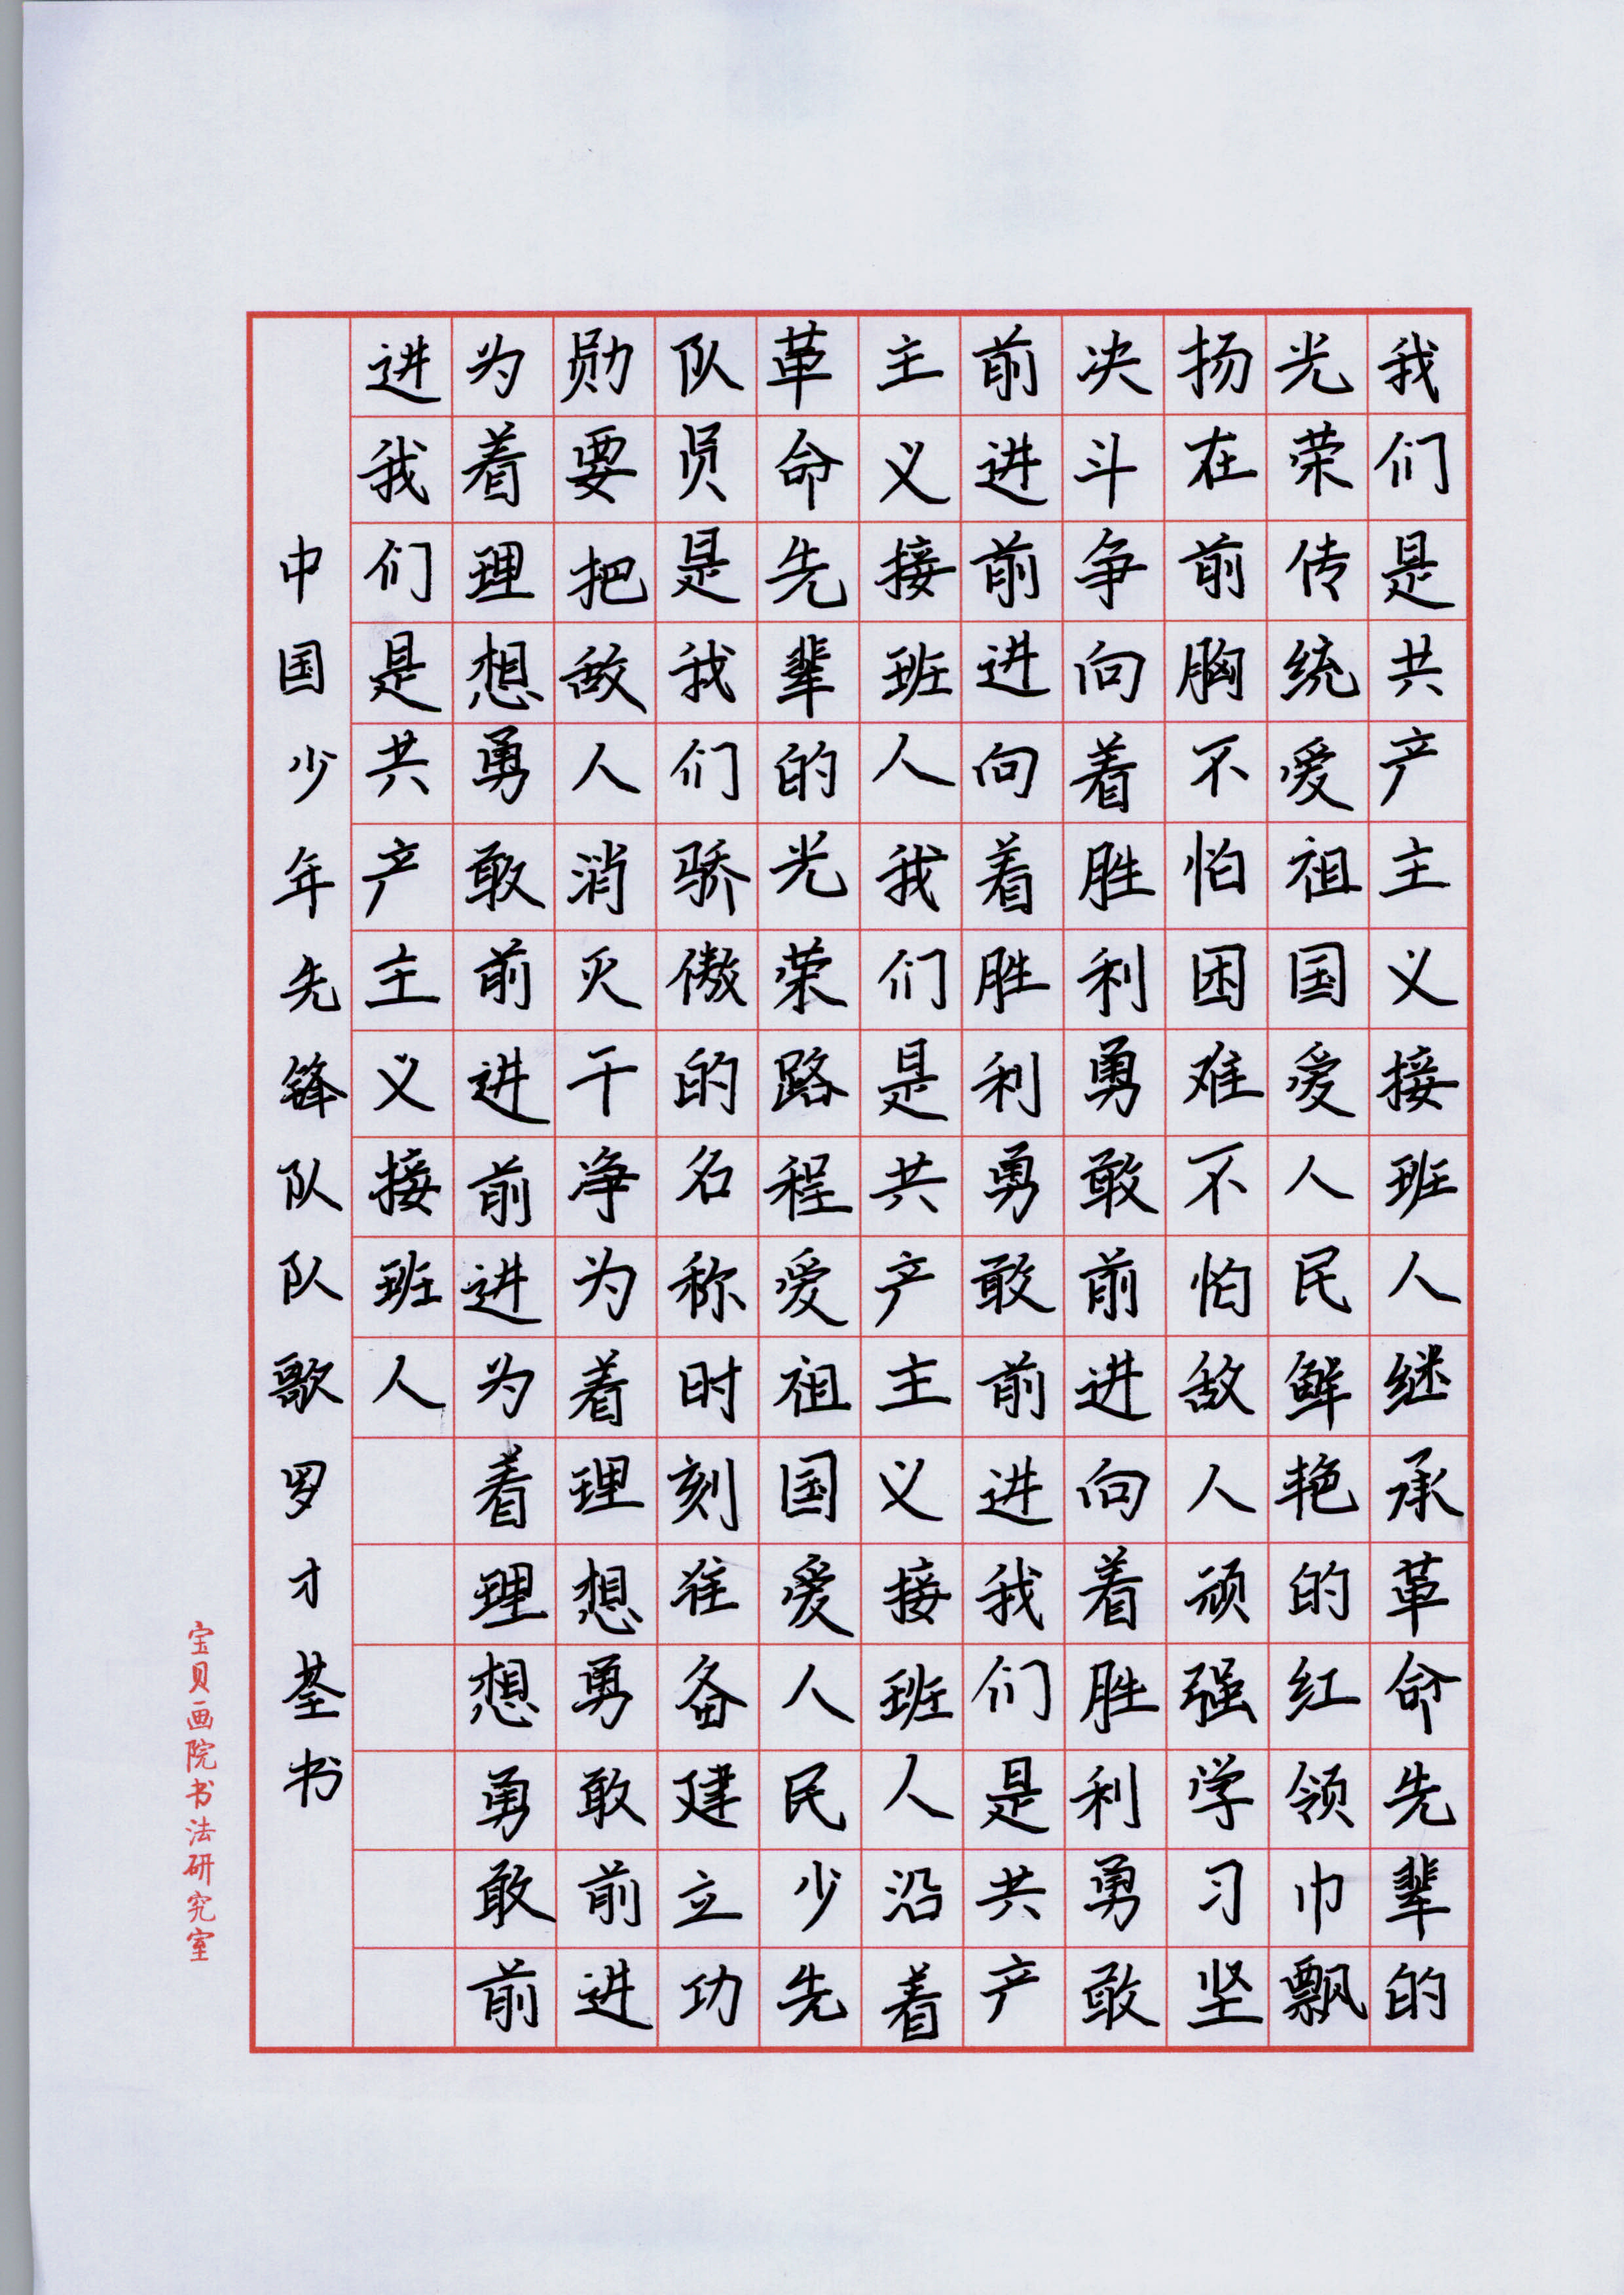 我们是共产主义接班人继承革命先辈的
光荣传统爱祖国爱人民鲜艳的红领巾飘
扬在前胸不怕困难不怕敌人顽强学习坚
决斗争向着胜利勇敢前进向着胜利勇敢
前进前进向着胜利勇敢前进我们是共产
主义接班人我们是共产主义接班人沿着
革命先辈的光荣路程爱祖国爱人民少先
队员是我们骄傲的名称时刻准备建立功
勋要把敌人消灭干净为着理想勇敢前进
为着理想勇敢前进前进为着理想勇敢前
进我们是共产主义接班人
中国少年先锋队队歌罗才荃书
宝贝画院书法研究室